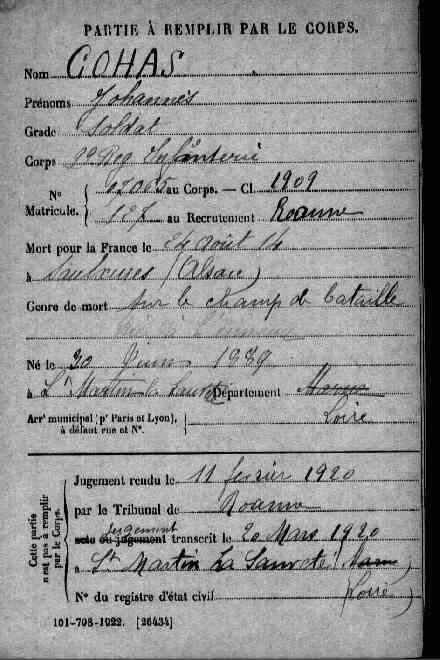 PARTIE À REMPLIR PAR LE CORPS.
Nom COHAS
Prénoms Johannès
Grade Soldat
Corps Reg Infanterie
Nº Matricule. au Corps. — Cl. 1909
au Recrutement Roanne
Mort pour la France le 24 août 14
à (Alsace)
Genre de mort sur le champ de bataille
Né le 30 Juin 1889
à St Martin la Sauveté Département
Loire
Arrt municipal (pr Paris et Lyon), à défaut rue et Nº.
Cette partie n'est pas à remplir par le Corps.
Jugement rendu le 11 fevrier 1920
par le Tribunal de Roanne
acte ou jugement Jugement transcrit le 20 Mars 1920
à St Martin La Sauveté
(Loire)
Nº du registre d'état civil
101-708-1922. [26434]